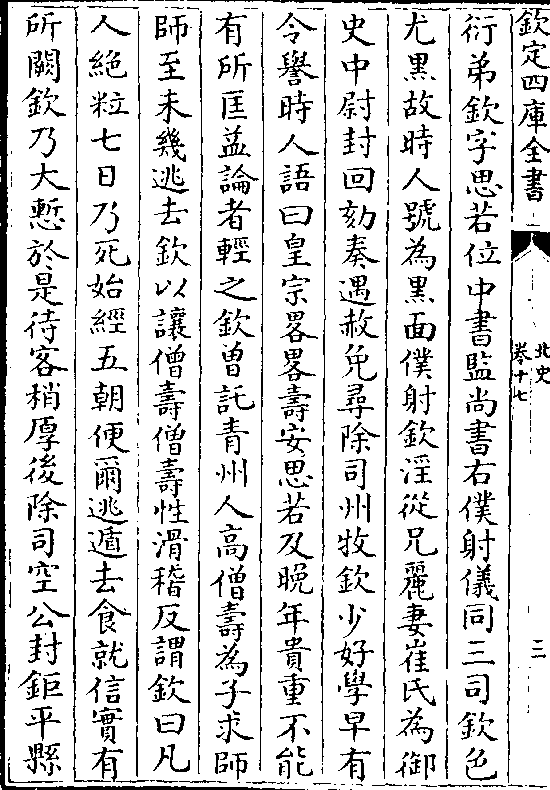 欽定四庫全書
北史
卷十七
三
衍弟欽字思若位中書監尚書右僕射儀同三司欽色
尤黑故時人號為黑面僕射欽淫從兄麗妻崔氏為御
史中尉封回劾奏遇赦免尋除司州牧欽少好學早有
令譽時人語曰皇宗畧畧壽安思若及晚年貴重不能
有所匡益論者輕之欽曽託青州人高僧壽為子求師
師至未幾逃去欽以讓僧壽僧壽性滑稽反謂欽曰凡
人絶粒七日乃死始經五朝便爾逃遁去食就信實有
所闕欽乃大慙於是待客稍厚後除司空公封鉅平縣